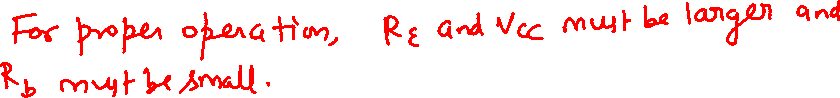 For proper operation, RE and VCC must be larger and
Rb must be small.